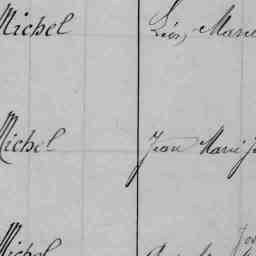 Michel Léon, Marie
Michel Jean Marie J
Michel